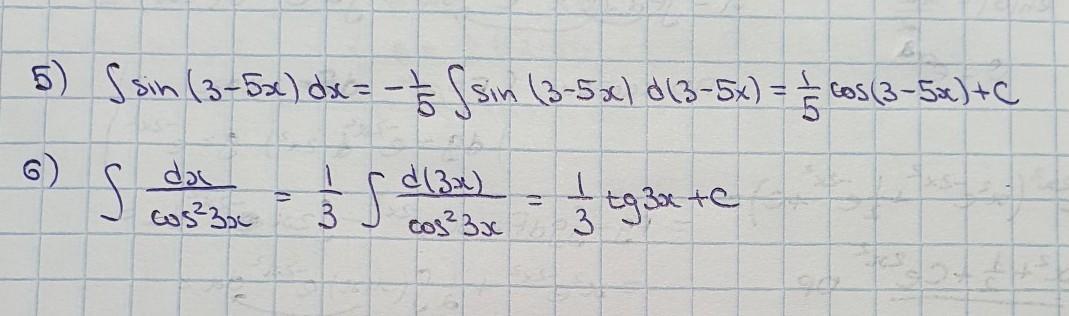 5) ∫ sin (3-5x) dx = -1/5 ∫ sin (3-5x) d(3-5x) = 1/5 cos(3-5x)+C
6) ∫ dx/cos²3x = 1/3 ∫ d(3x)/cos²3x = 1/3 tg3x+C